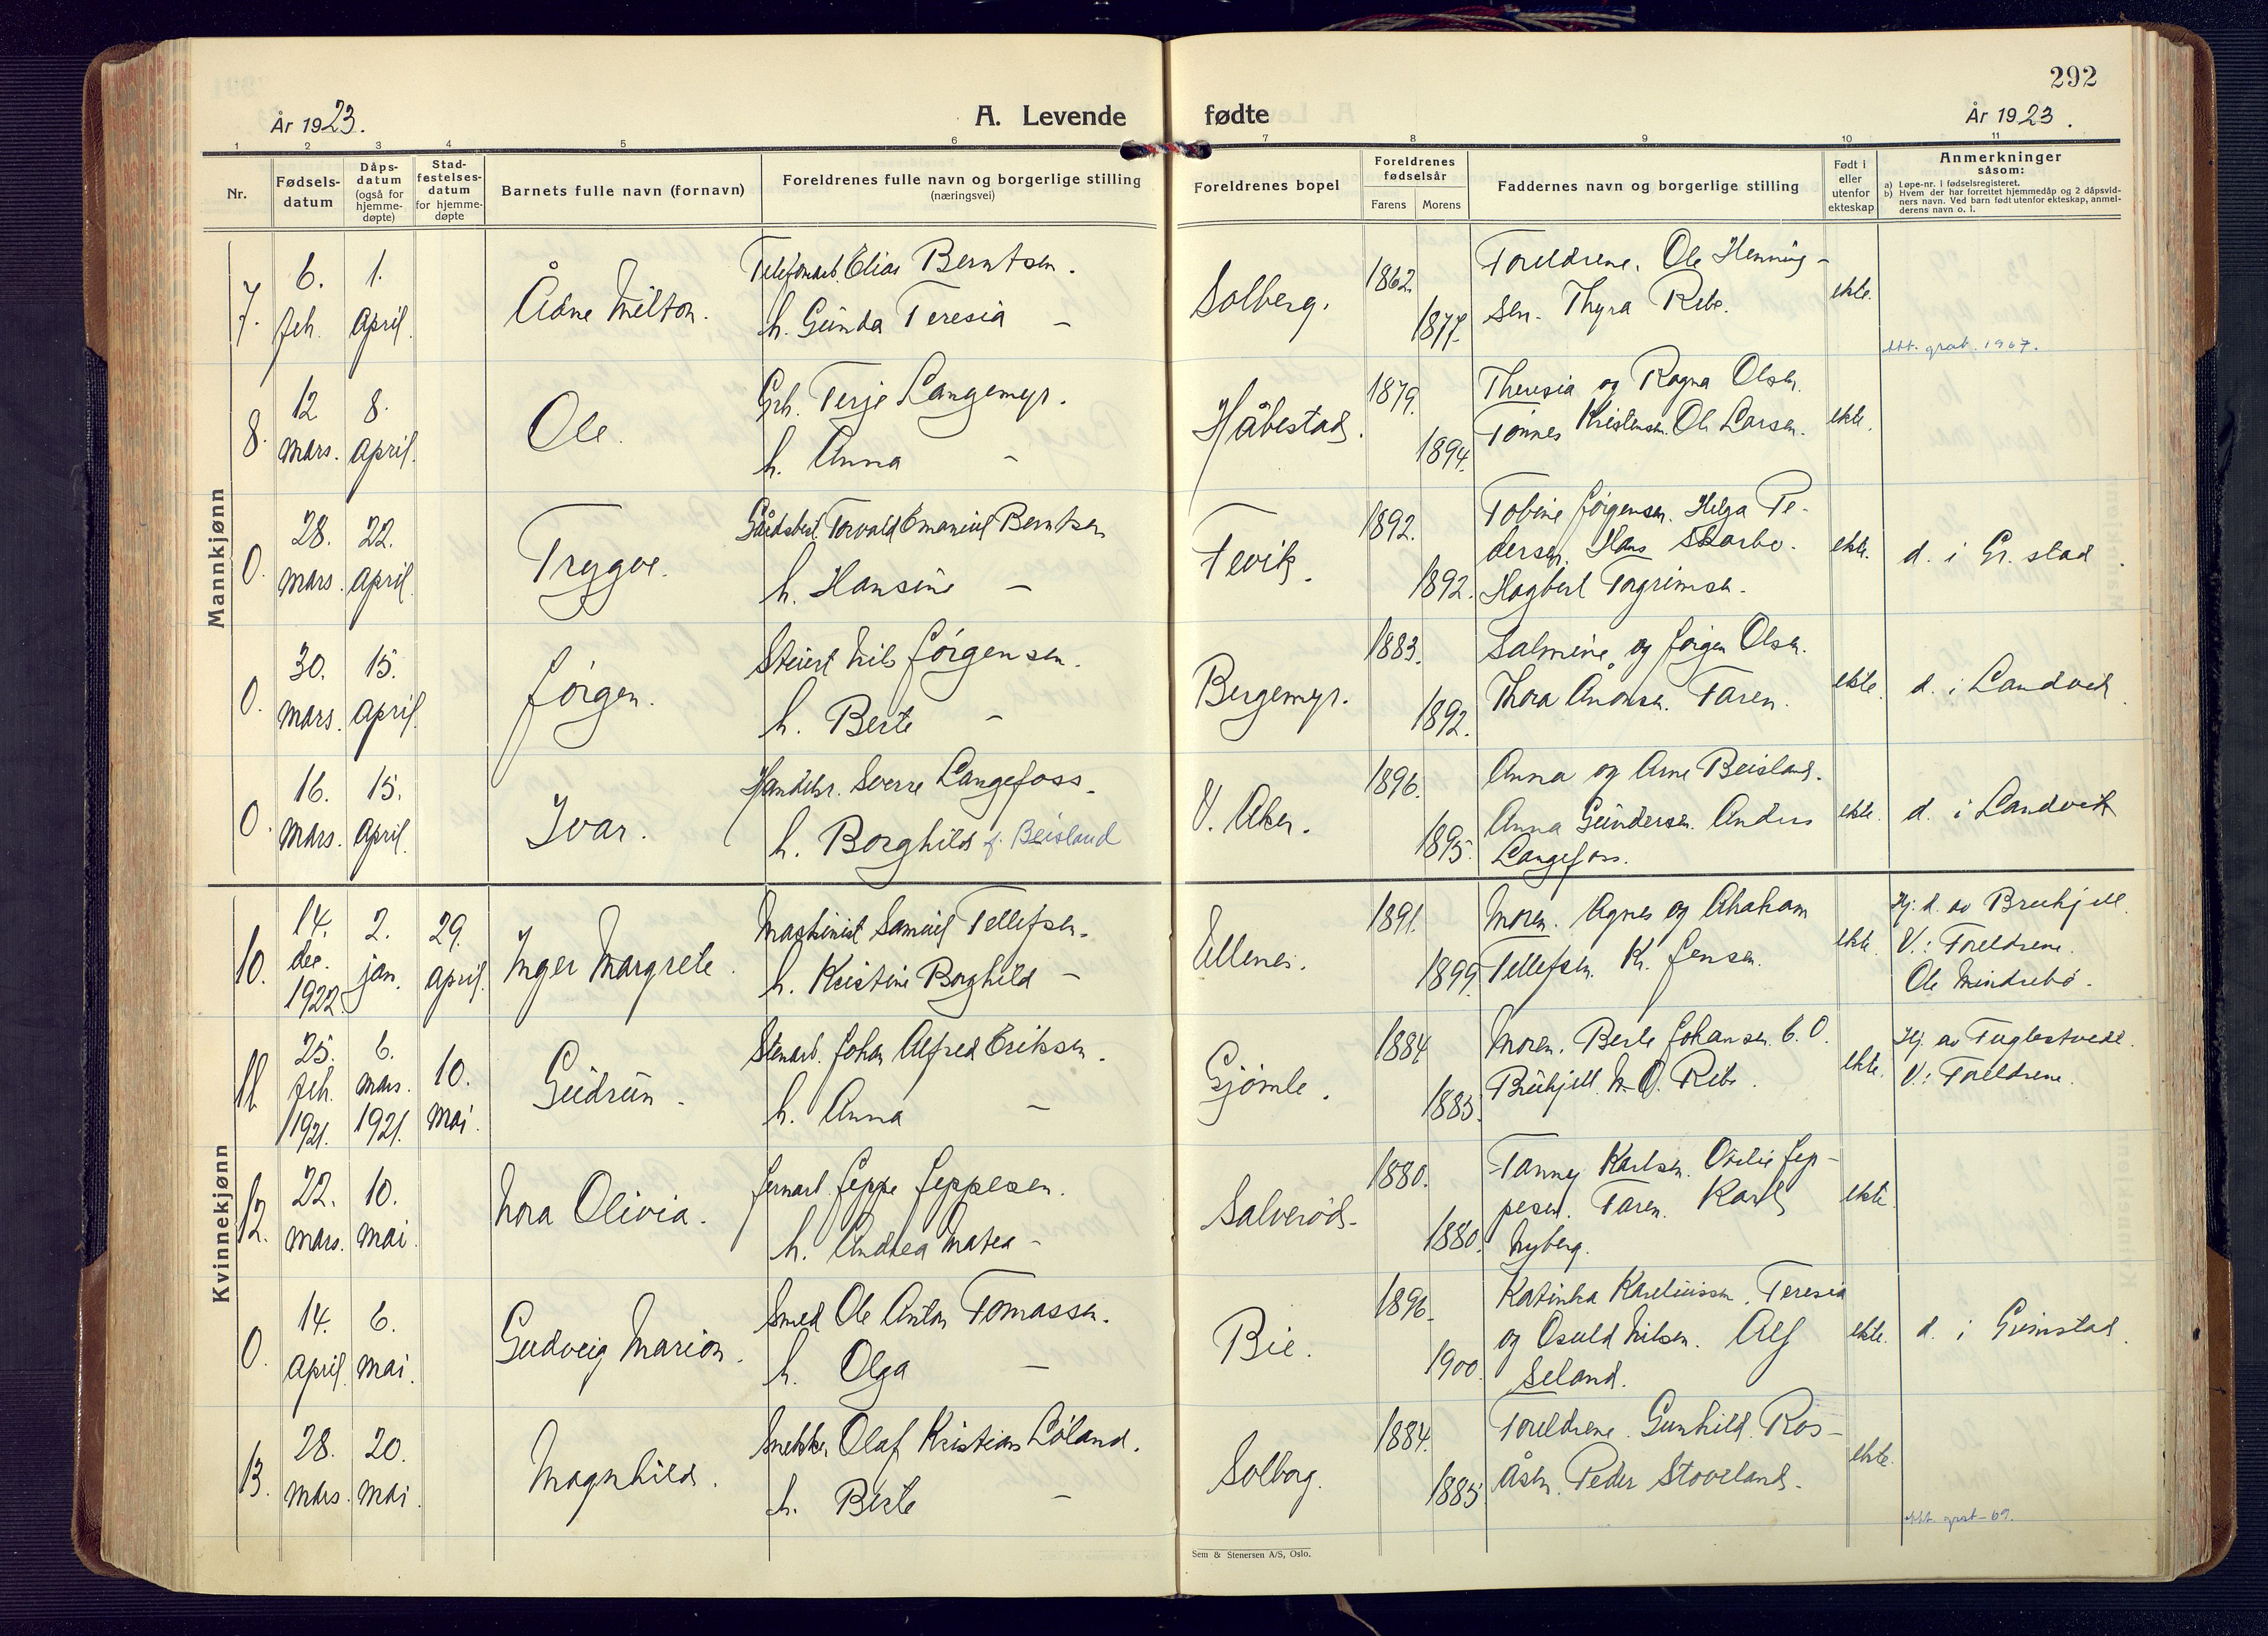 292
År 1923.
A. Levende
fødte
År 1923.
1 2 3 4 5 6 7 8 9 10 11
Nr.
Fødsels-
datum
Dåps-
datum
(også for
hjemme-
døpte)
Stad-
festelses-
datum
for hjemme-
døpte
Barnets fulle navn (fornavn)
Foreldrenes fulle navn og borgerlige stilling
(næringsvei)
Foreldrenes bopel
Foreldrenes
fødselsår
Farens
Morens
Faddernes navn og borgerlige stilling
Født i
eller
utenfor
ekteskap
Anmerkninger
såsom:
a) Løpe-nr. i fødselsregisteret.
b) Hvem der har forrettet hjemmedåp og 2 dåpsvid-
ners navn. Ved barn født utenfor ekteskap, anmel-
derens navn o. l.
Mannkjønn
7.
6.
feb.
1.
April.
Ådne Milton.
Telefonarb. Elias Berntsen.
h. Gunda Teresia —
Solberg.
1862.
1877.
Foreldrene. Ole Henning-
sen. Thyra Ribe.
ekte.
att. grat. 1967.
8.
12
mars.
8.
April.
Ole.
Grb. Terje Langemyr.
h. Anna —
Håbestad.
1879.
1894.
Theresia og Ragna Olsen.
Tønnes Kristensen. Ole Larsen.
ekte.
0.
28.
mars.
22.
April.
Trygve.
Gårdsbest. Torvald Emanuel Berntsen
h. Hansine —
Fevik.
1892.
1892.
Tobine Jørgensen. Helga Pe-
dersen. Hans Skarbo.
Hagbert Torgrimsen.
ekte.
d. i Gr.stad.
0.
30.
mars.
15.
April.
Jørgen.
Stuert Nils Jørgensen.
h. Berte —
Bergemyr.
1883.
1892.
Salmine og Jørgen Olsen.
Thora Aronsen. Faren.
ekte.
d. i Landvik.
0.
16.
Mars.
15.
April.
Ivar.
Handelsr. Sverre Langefoss.
h. Borghild f. Beisland
V. Aker.
1896.
1895.
Anna og Arne Beisland.
Anna Gundersen. Anders
Langefoss.
ekte.
d. i Landvik
Kvinnekjønn
10.
14.
dec.
1922.
2.
jan.
29.
April.
Inger Margrete.
Maskinist Samuel Tellefsen.
h. Kristine Borghild —
Ullenes.
1891.
1899.
Moren. Agnes og Abraham
Tellefsen. K. Jensen.
ekte.
Hj: d. av Bruhjell.
V.: Foreldrene.
Ole Mindrebø.
11.
25.
feb.
1921.
6.
mars.
1921.
10.
mai.
Gudrun.
Stenarb. Johan Alfred Eriksen.
h. Anna —
Gjømle.
1884
1885.
Moren. Berte Johansen. C. O.
Bruhjell. M. O. Ribe.
ekte.
Hj. av Fuglestvedt.
V.: Foreldrene.
12.
22.
mars.
10.
mai.
Nora Olivia.
Jernarb. Jeppe Jeppesen.
h. Andrea Matea —
Salverød.
1880.
1880.
Fanny Karlsen. Otilie Jep-
pesen. Faren. Karl
Nyberg.
ekte.
0.
14.
April.
6.
mai.
Gudveig Marion.
Smed Ole Anton Tomassen.
h. Olga —
Bie.
1896.
1900.
Katinka Kareliussen. Teresia
og Osuld Nilsen. Alf
Seland.
ekte.
d. i Grimstad.
13.
28.
mars.
20.
mai.
Magnhild.
Snekker Olaf Kristian Løland.
h. Berte —
Solberg.
1884.
1885.
Foreldrene. Gunhild. Ros-
Åsen. Peder Stoveland.
ekte.
att. grat-69.
Sem & Stenersen A/S, Oslo.